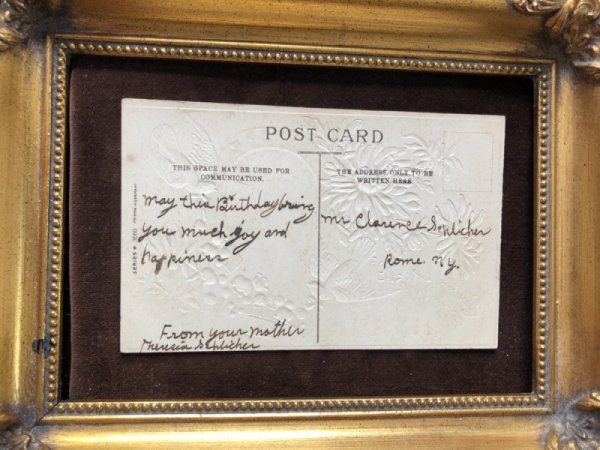 POST CARD
THIS SPACE MAY BE USED FOR
COMMUNICATION.
THE ADDRESS ONLY TO BE
WRITTEN HERE
May this Birthday bring
you much joy and
happiness
From your mother
Theresia
Mr Clarence
Rome. Ny.
SERIES #